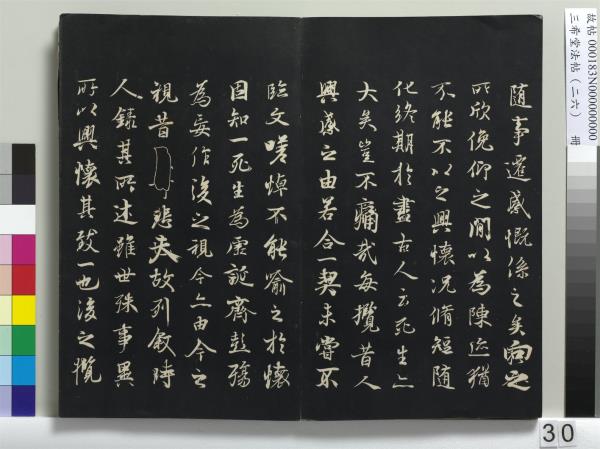 故帖 000183N000000000
三希堂法帖（二六） 冊
隨事遷感慨係之矣向之
所欣俛仰之間以為陳迹猶
不能不以之興懷況脩短隨
化終期於盡古人云死生亦
大矣豈不痛哉每攬昔人
興感之由若合一契未嘗不
臨文嗟悼不能喻之於懷
固知一死生為虛誕齊彭殤
為妄作後之視今亦由今之
視昔 悲夫故列敘時
人錄其所述雖世殊事異
所以興懷其致一也後之攬
30